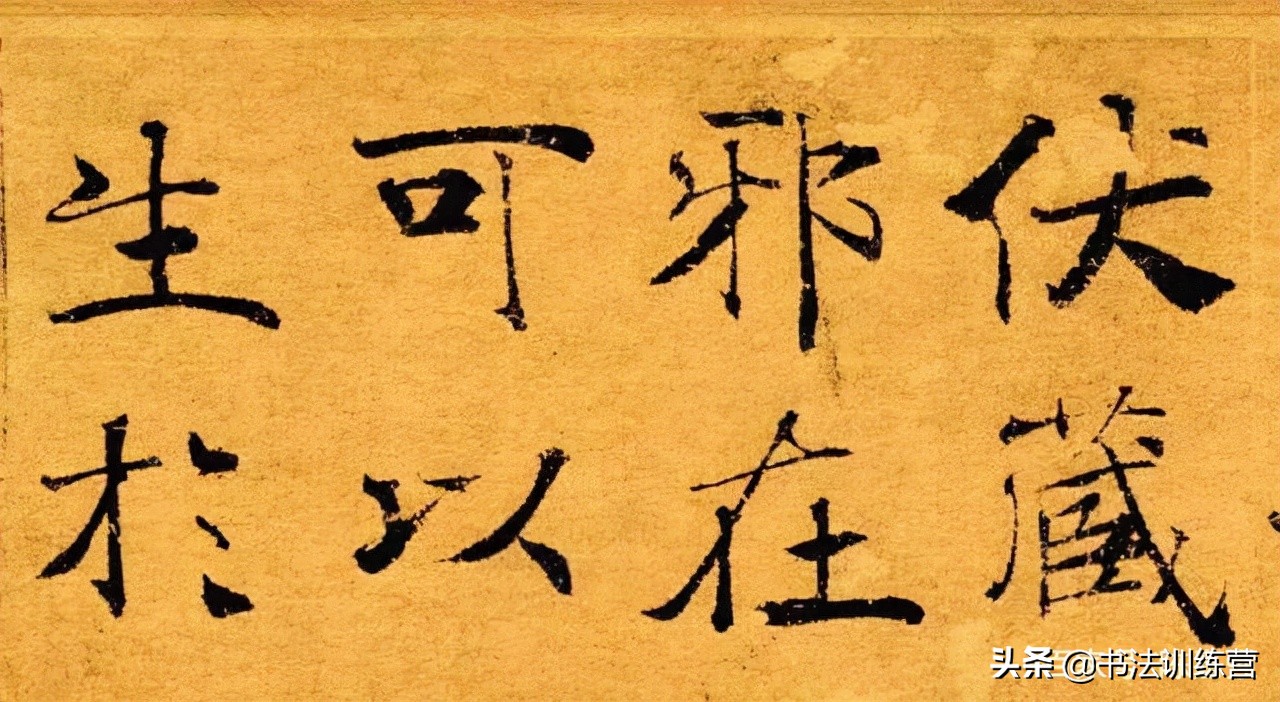 伏藏
邪在
可以
生於
头条 @书法训练营